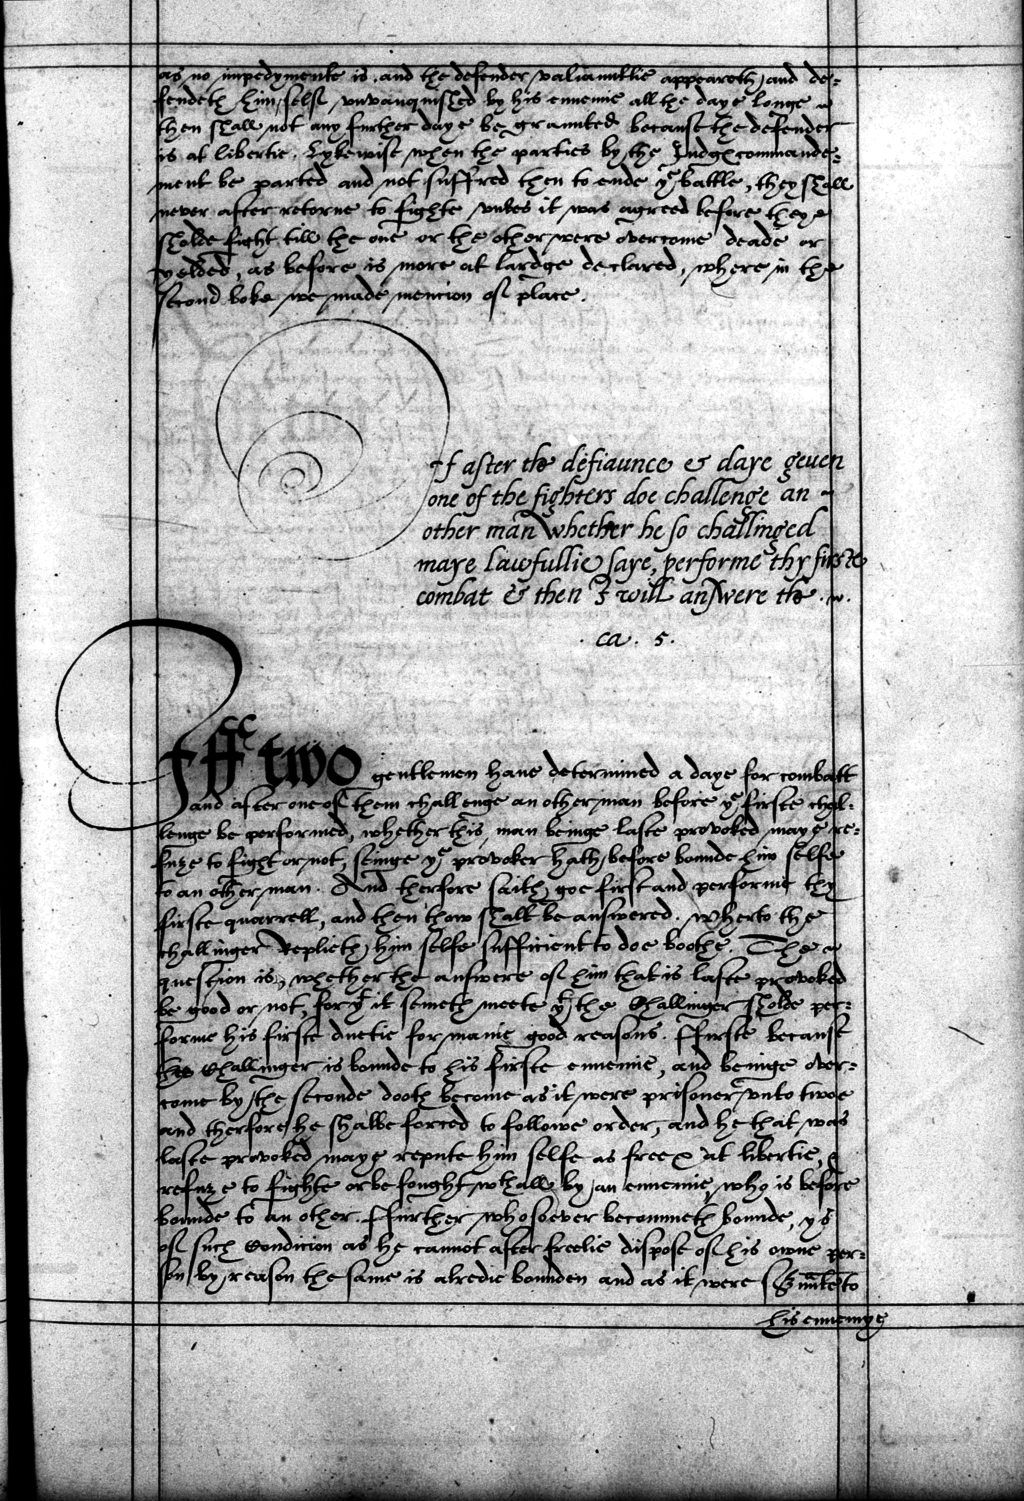 as no impedymente is, and the defender valiauntlie appeareth, and de-
fendeth him selfe vnvanquished by his ennemie all the daye longe
then shall not any further daye be graunted because the defender
is at libertie. Lykewise when the parties by the Judge commaunde-
ment be parted and not suffred then to ende ye battle, they shall
never after retorne to fighte vnles it was agreed before they
sholde fight till the one or the other were overcome deade or
yelded, as before is more at lardge declared, where in the
second boke we made mencion of place.
If after the defiaunce & daye geuen
one of the fighters doe challenge an
other man whether he so challinged
maye lawfullie saye, performe thy firste
combat & then I will answere the.
ca. 5.
Iff two gentlemen haue determined a daye for combatt
and after one of them challenge an other man before ye firste chal-
lenge be performed, whether this man beinge laste provoked maye re-
fuze to fight or not, seinge ye provoker hath before bounde him selfe
to an other man. And therfore saith, goe first and performe thy
firste quarrell, and then thow shalt be answered. Wherto the
challinger replieth him selfe sufficient to doe boothe. The
question is, whether the answere of him that is laste provoked
be good or not, for yt it semeth meete yt the Challinger sholde per-
forme his firste duetie for manie good reasons. Ffirste because
the Challinger is bounde to his firste ennemie, and beinge over-
come by the seconde dooth become as it were prisoner vnto twoe
and therfore he shalbe forced to followe order, and he that was
laste provoked maye repute him selfe as free & at libertie, &
refuze to fighte or be fought wthall by an ennemie, who is before
bounde to an other. Ffurther whosoever becommeth bounde, ys
of such Condicion as he cannot after freelie dispose of his owne per-
son by reason the same is alredie bounden and as it were Servante to
his ennemye